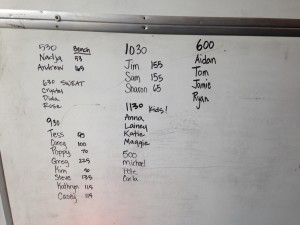 530 Bench
Nadja 53
Andrew 165
630 SWEAT
Crystal
Rose
930
Tess 95
Corey 100
Poppy 70
Greg 225
Kim 90
Steve 135
Kathryn 115
Casey 115
1030
Jim 155
Sam 155
Sharon 65
1130 Kids!
Anna
Lainey
Katie
Maggie
500
Michael
Pete
Carla
600
Aidan
Tom
Jamie
Ryan